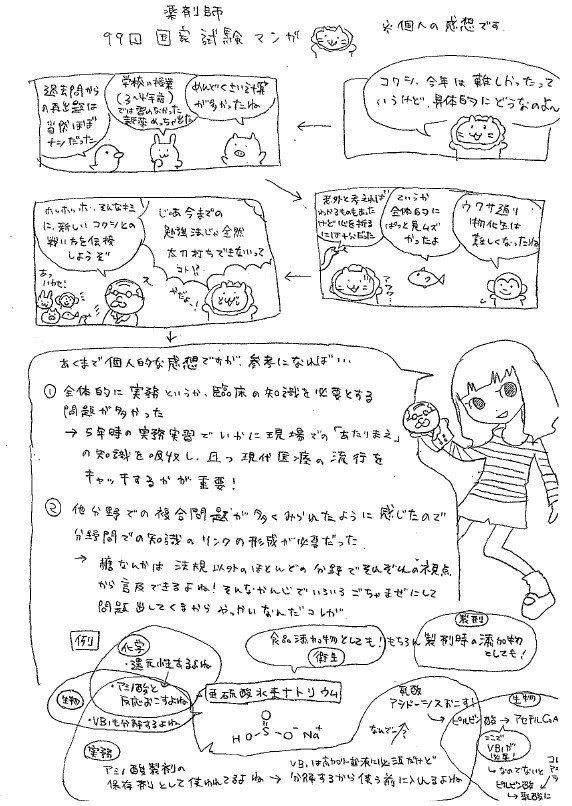 薬剤師
99回 国家試験マンガ
※個人の感想です。
コクシ、今年は難しかったって
いうけど、具体的にどうなのよん
めんどくさい計算
が多かったね
学校の授業
(3〜4年前)
では習わなかった
新薬めっちゃでた
過去問から
の再出題は
当然ほぼ
ナシだった
ウワサ通り
物化生は
難しくなったね
ていうか
全体的に
ぱっと見ムズ
かったよ
意外と考えれば
わかるものもあった
けど心を折る
には十分だった
アワワ…
じゃあ今までの
勉強法じゃ全然
太刀打ちできないって
コト!?
やだよ〜!
ホッホッホ、そんなキミ
に、新しいコクシとの
戦い方を伝授
しようぞ
あくまで個人的な感想ですが、参考になれば…
① 全体的に実務というか、臨床の知識を必要とする
問題が多かった
→ 5年時の実務実習でいかに現場での「あたりまえ」
の知識を吸収し、且つ現代医療の流行を
キャッチするかが重要!
② 他分野での複合問題が多くみられたように感じたので
分野間での知識のリンクの形成が必要だった
→ 糖なんかは法規以外のほとんどの分野でそれぞれの視点
から言及できるよね!そんなかんじでいろいろごちゃまぜにして
問題出してくるからやっかいなんだコレが
例)
化学
・還元性するよね
・アミノ酸と
反応おこすよね
生物
・VB1も分解するよね
食品添加物としても!
衛生
もちろん製剤時の添加物
としても!
製剤
亜硫酸水素ナトリウム
HO S O O⁻ Na⁺
実務
アミノ酸製剤の
保存剤として使われてるよね
→ VB1は高カロリー輸液に必須だけど
分解するから使う前に入れるよね
なんで〜?
乳酸
アシドーシスおこす!
生物
ピルビン酸 → アセチルCoA
ここで
VB1が
必要!
→ なのでないと
ピルビン酸
→ 乳酸に